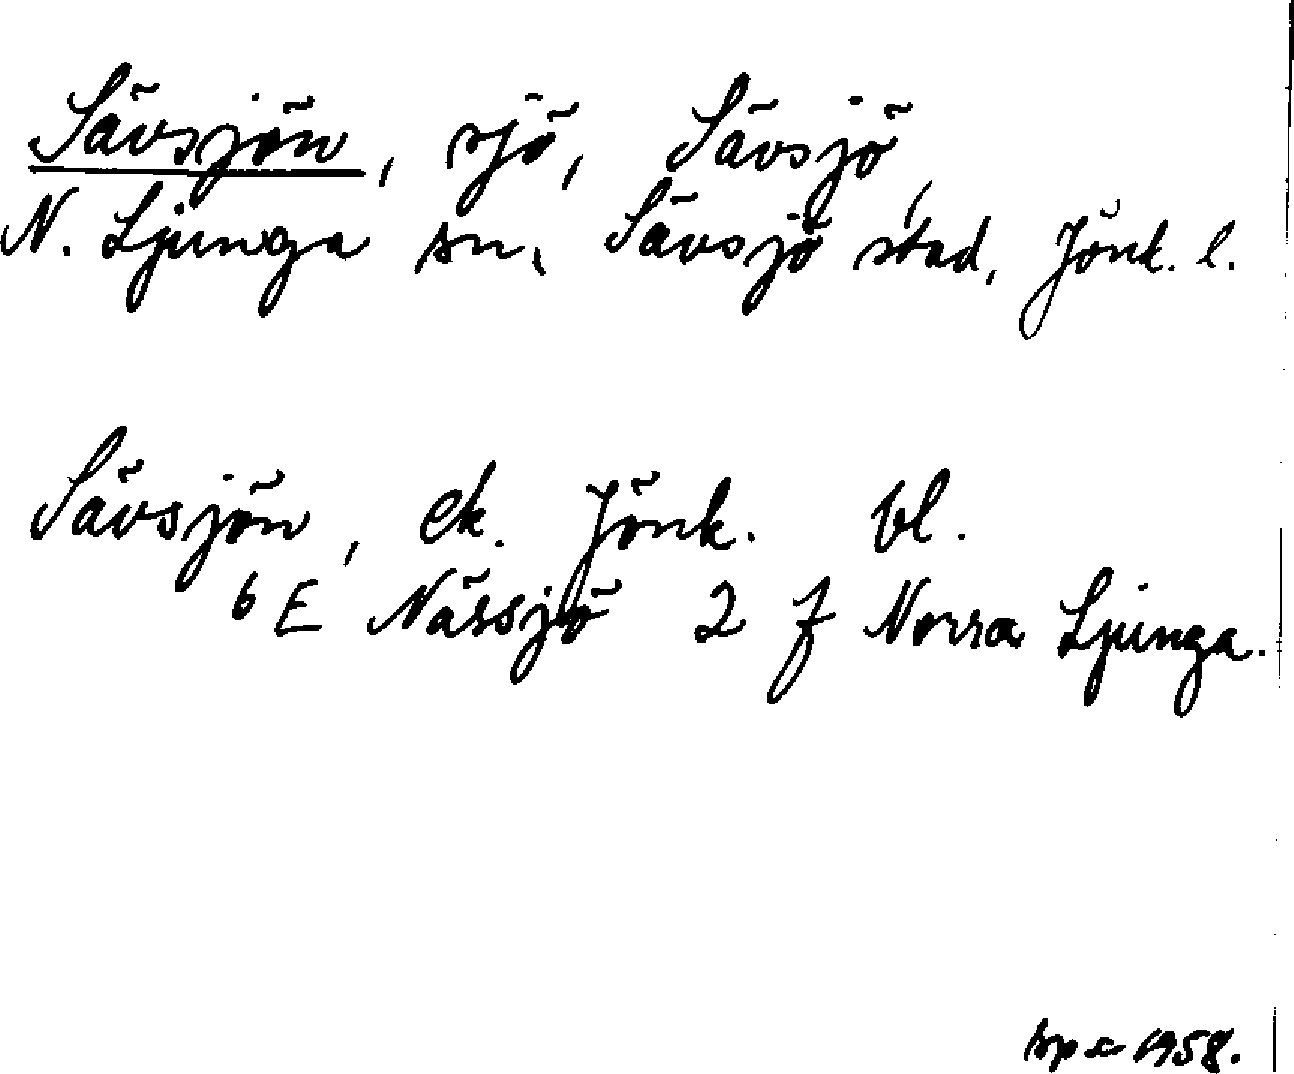 Sävsjön, sjö, Sävsjö,
N. Ljunga sn, Sävsjö stad, Jönk. l.
Sävsjön, ek. Jönk. bl.
6 E Nässjö 2 f Norra Ljunga.
1958.